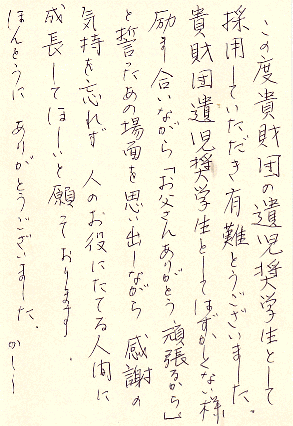 この度貴財団の遺児奨学生として
採用していただき有難とうございました。
貴財団遺児奨学生としてはずかしくない様
励まし合いながら「お父さんありがとう頑張るから」
と誓ったあの場面を思い出しながら 感謝の
気持を忘れず 人のお役にたてる人間に
成長してほしいと願っております。
ほんとうに ありがとうございました。 かしこ